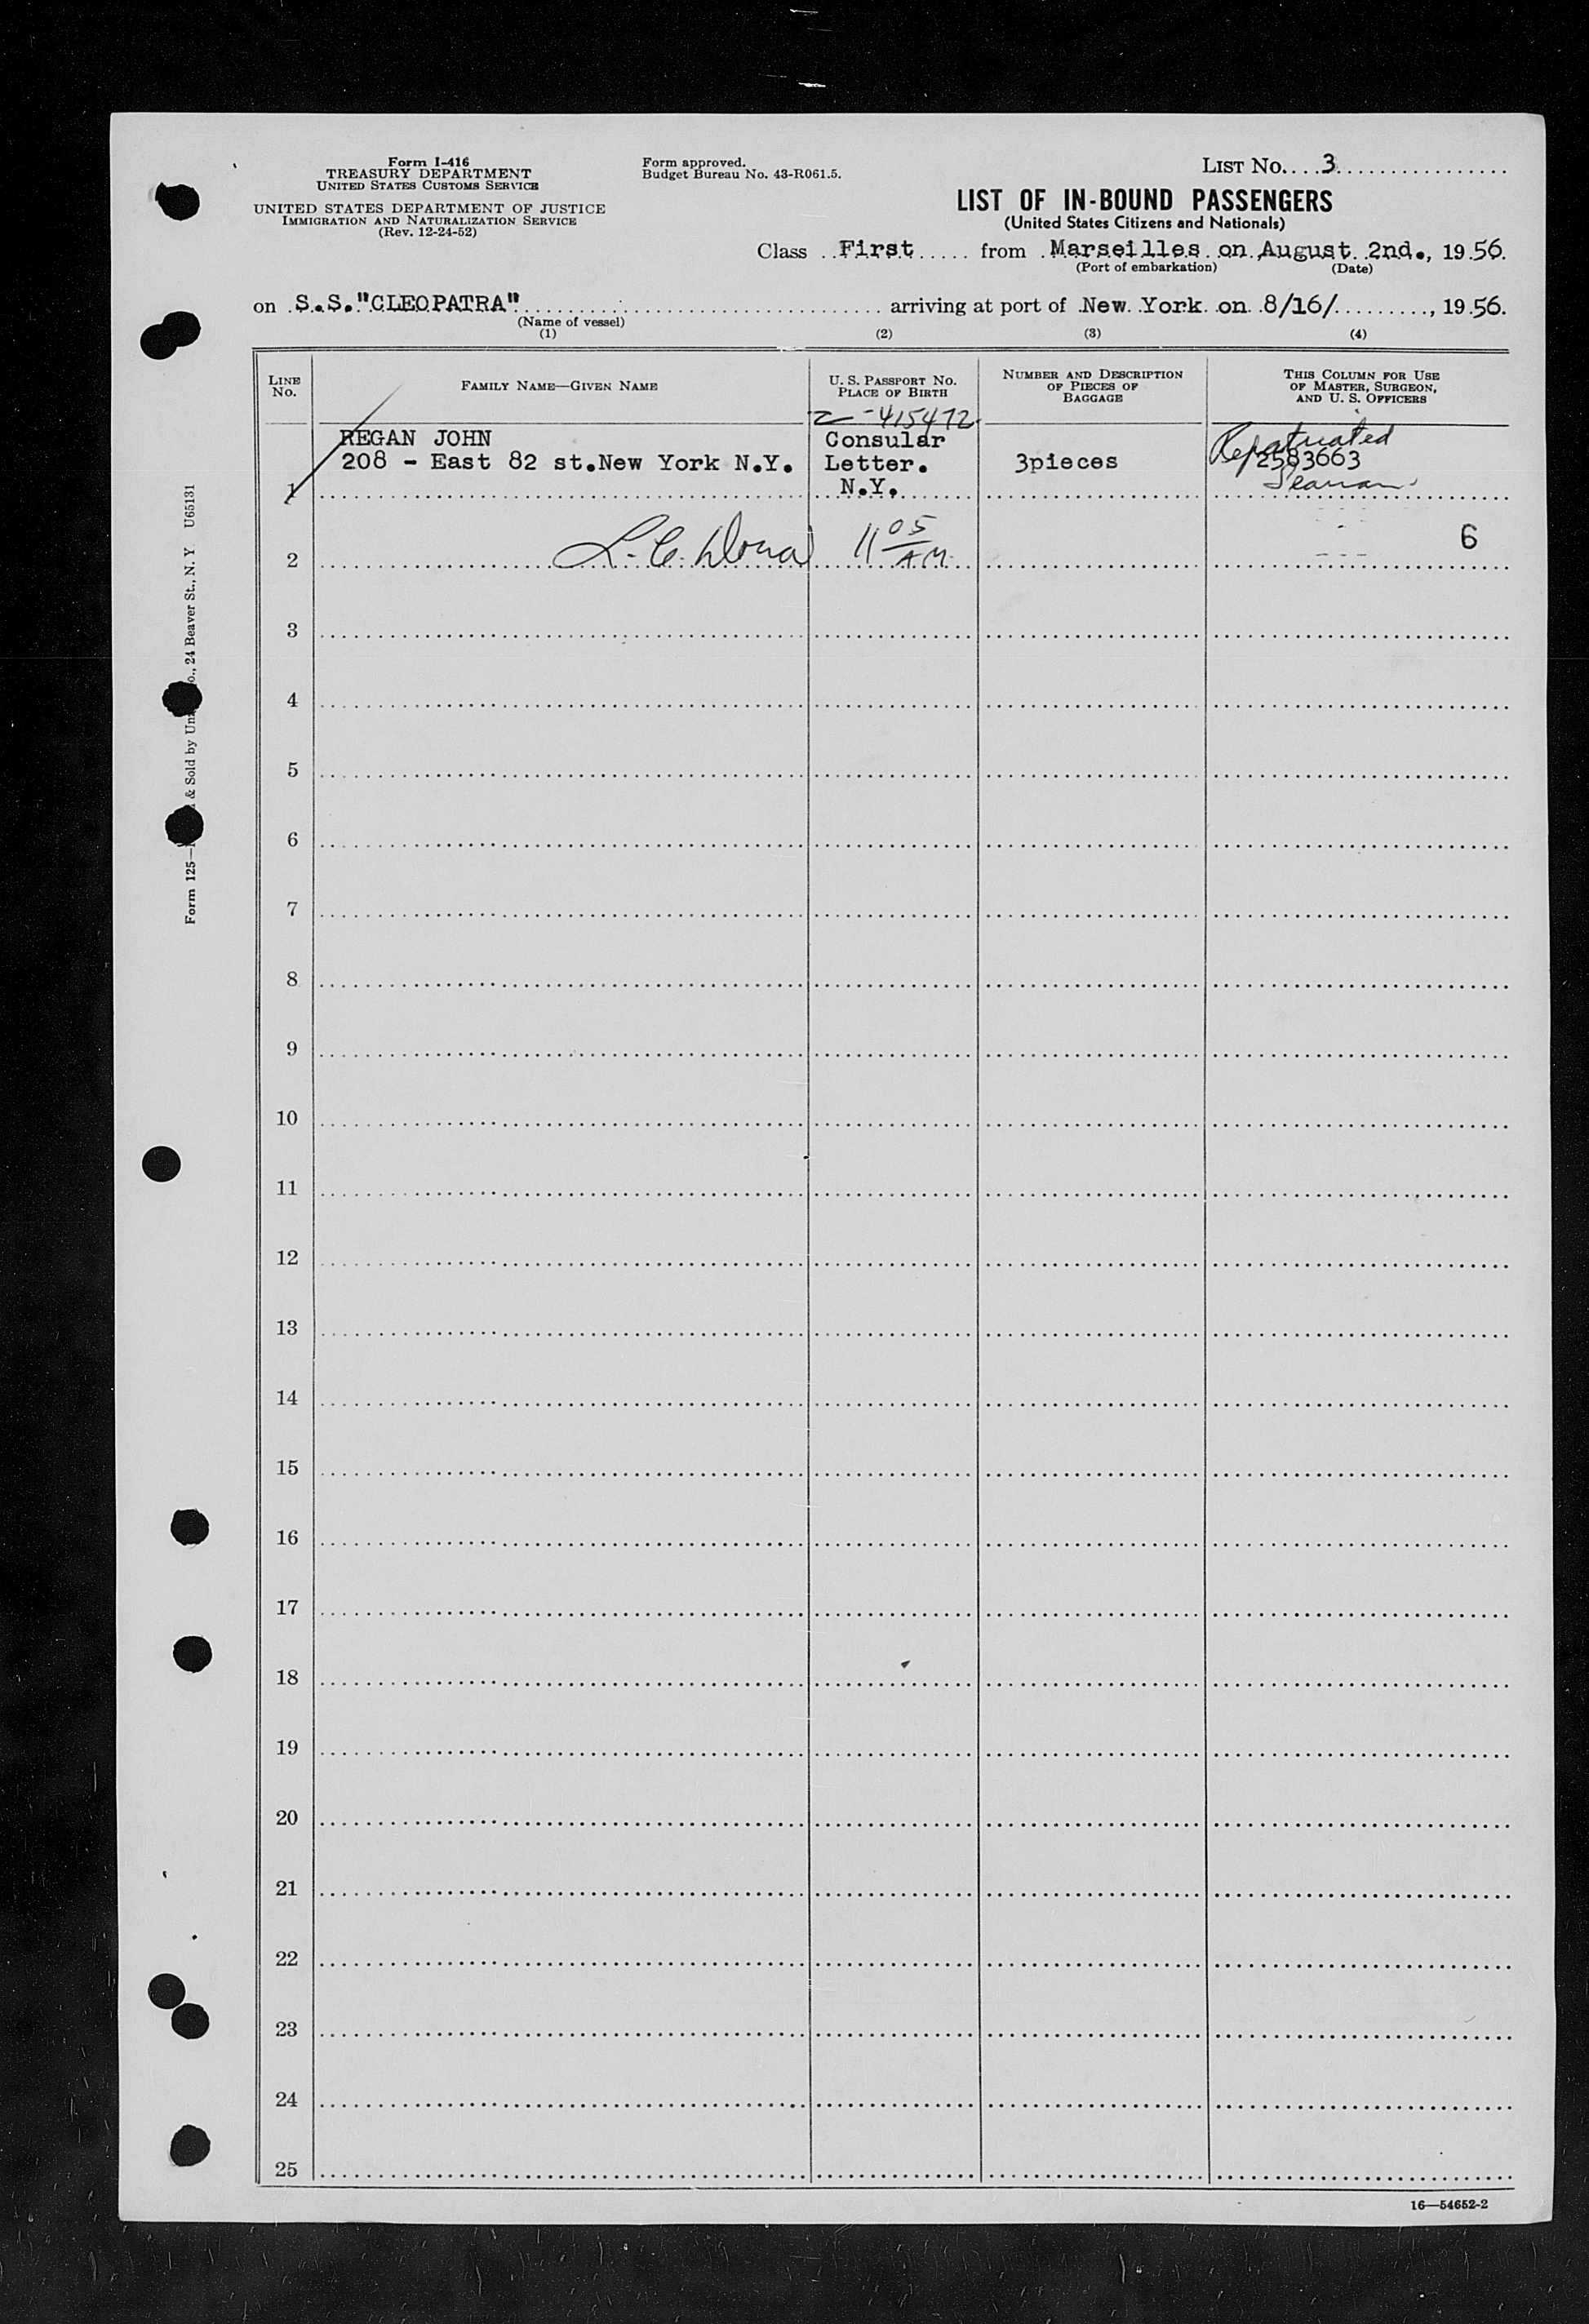 Form I-416
TREASURY DEPARTMENT
UNITED STATES CUSTOMS SERVICE
UNITED STATES DEPARTMENT OF JUSTICE
IMMIGRATION AND NATURALIZATION SERVICE
(Rev. 12-24-52)
Form approved.
Budget Bureau No. 43-R061.5.
LIST No. 3
LIST OF IN-BOUND PASSENGERS
(United States Citizens and Nationals)
Class First from Marseilles on August 2nd., 1956.
(Port of embarkation) (Date)
on S.S."CLEOPATRA" arriving at port of New York on 8/16/, 1956.
(Name of vessel)
(1) (2) (3) (4)
LINE No. FAMILY NAME—GIVEN NAME U. S. PASSPORT No. PLACE OF BIRTH NUMBER AND DESCRIPTION OF PIECES OF BAGGAGE THIS COLUMN FOR USE OF MASTER, SURGEON, AND U. S. OFFICERS
Z-415472
REGAN JOHN Consular Repatriated
208 - East 82 st.New York N.Y. Letter. 3pieces 2583663
1 N.Y. Seaman
2 L. C. 11 05 A.M. 6
3
4
5
6
7
8
9
10
11
12
13
14
15
16
17
18
19
20
21
22
23
24
25
16—54652-2
Form 125— & Sold by Un o., 24 Beaver St., N. Y U65131